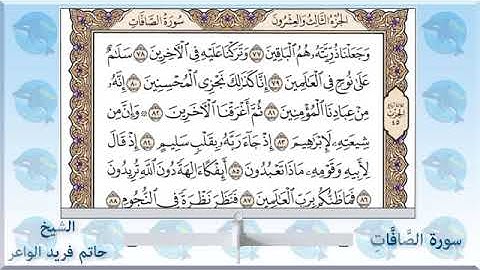 الجزء الثالث والعشرون
سورة الصافات
وَجَعَلْنَا ذُرِّيَّتَهُۥ هُمُ ٱلْبَاقِينَ ٧٧ وَتَرَكْنَا عَلَيْهِ فِى ٱلْـَٔاخِرِينَ ٧٨ سَلَٰمٌ
عَلَىٰ نُوحٍ فِى ٱلْعَٰلَمِينَ ٧٩ إِنَّا كَذَٰلِكَ نَجْزِى ٱلْمُحْسِنِينَ ٨٠ إِنَّهُۥ
مِنْ عِبَادِنَا ٱلْمُؤْمِنِينَ ٨١ ثُمَّ أَغْرَقْنَا ٱلْـَٔاخَرِينَ ٨٢ وَإِنَّ مِن
شِيعَتِهِۦ لَإِبْرَٰهِيمَ ٨٣ إِذْ جَآءَ رَبَّهُۥ بِقَلْبٍ سَلِيمٍ ٨٤ إِذْ قَالَ
لِأَبِيهِ وَقَوْمِهِۦ مَاذَا تَعْبُدُونَ ٨٥ أَئِفْكًا ءَالِهَةً دُونَ ٱللَّهِ تُرِيدُونَ
٨٦ فَمَا ظَنُّكُم بِرَبِّ ٱلْعَٰلَمِينَ ٨٧ فَنَظَرَ نَظْرَةً فِى ٱلنُّجُومِ ٨٨
الحزب
٤٥
سورة الصَّافَّاتِ
الشيخ
حاتم فريد الواعر